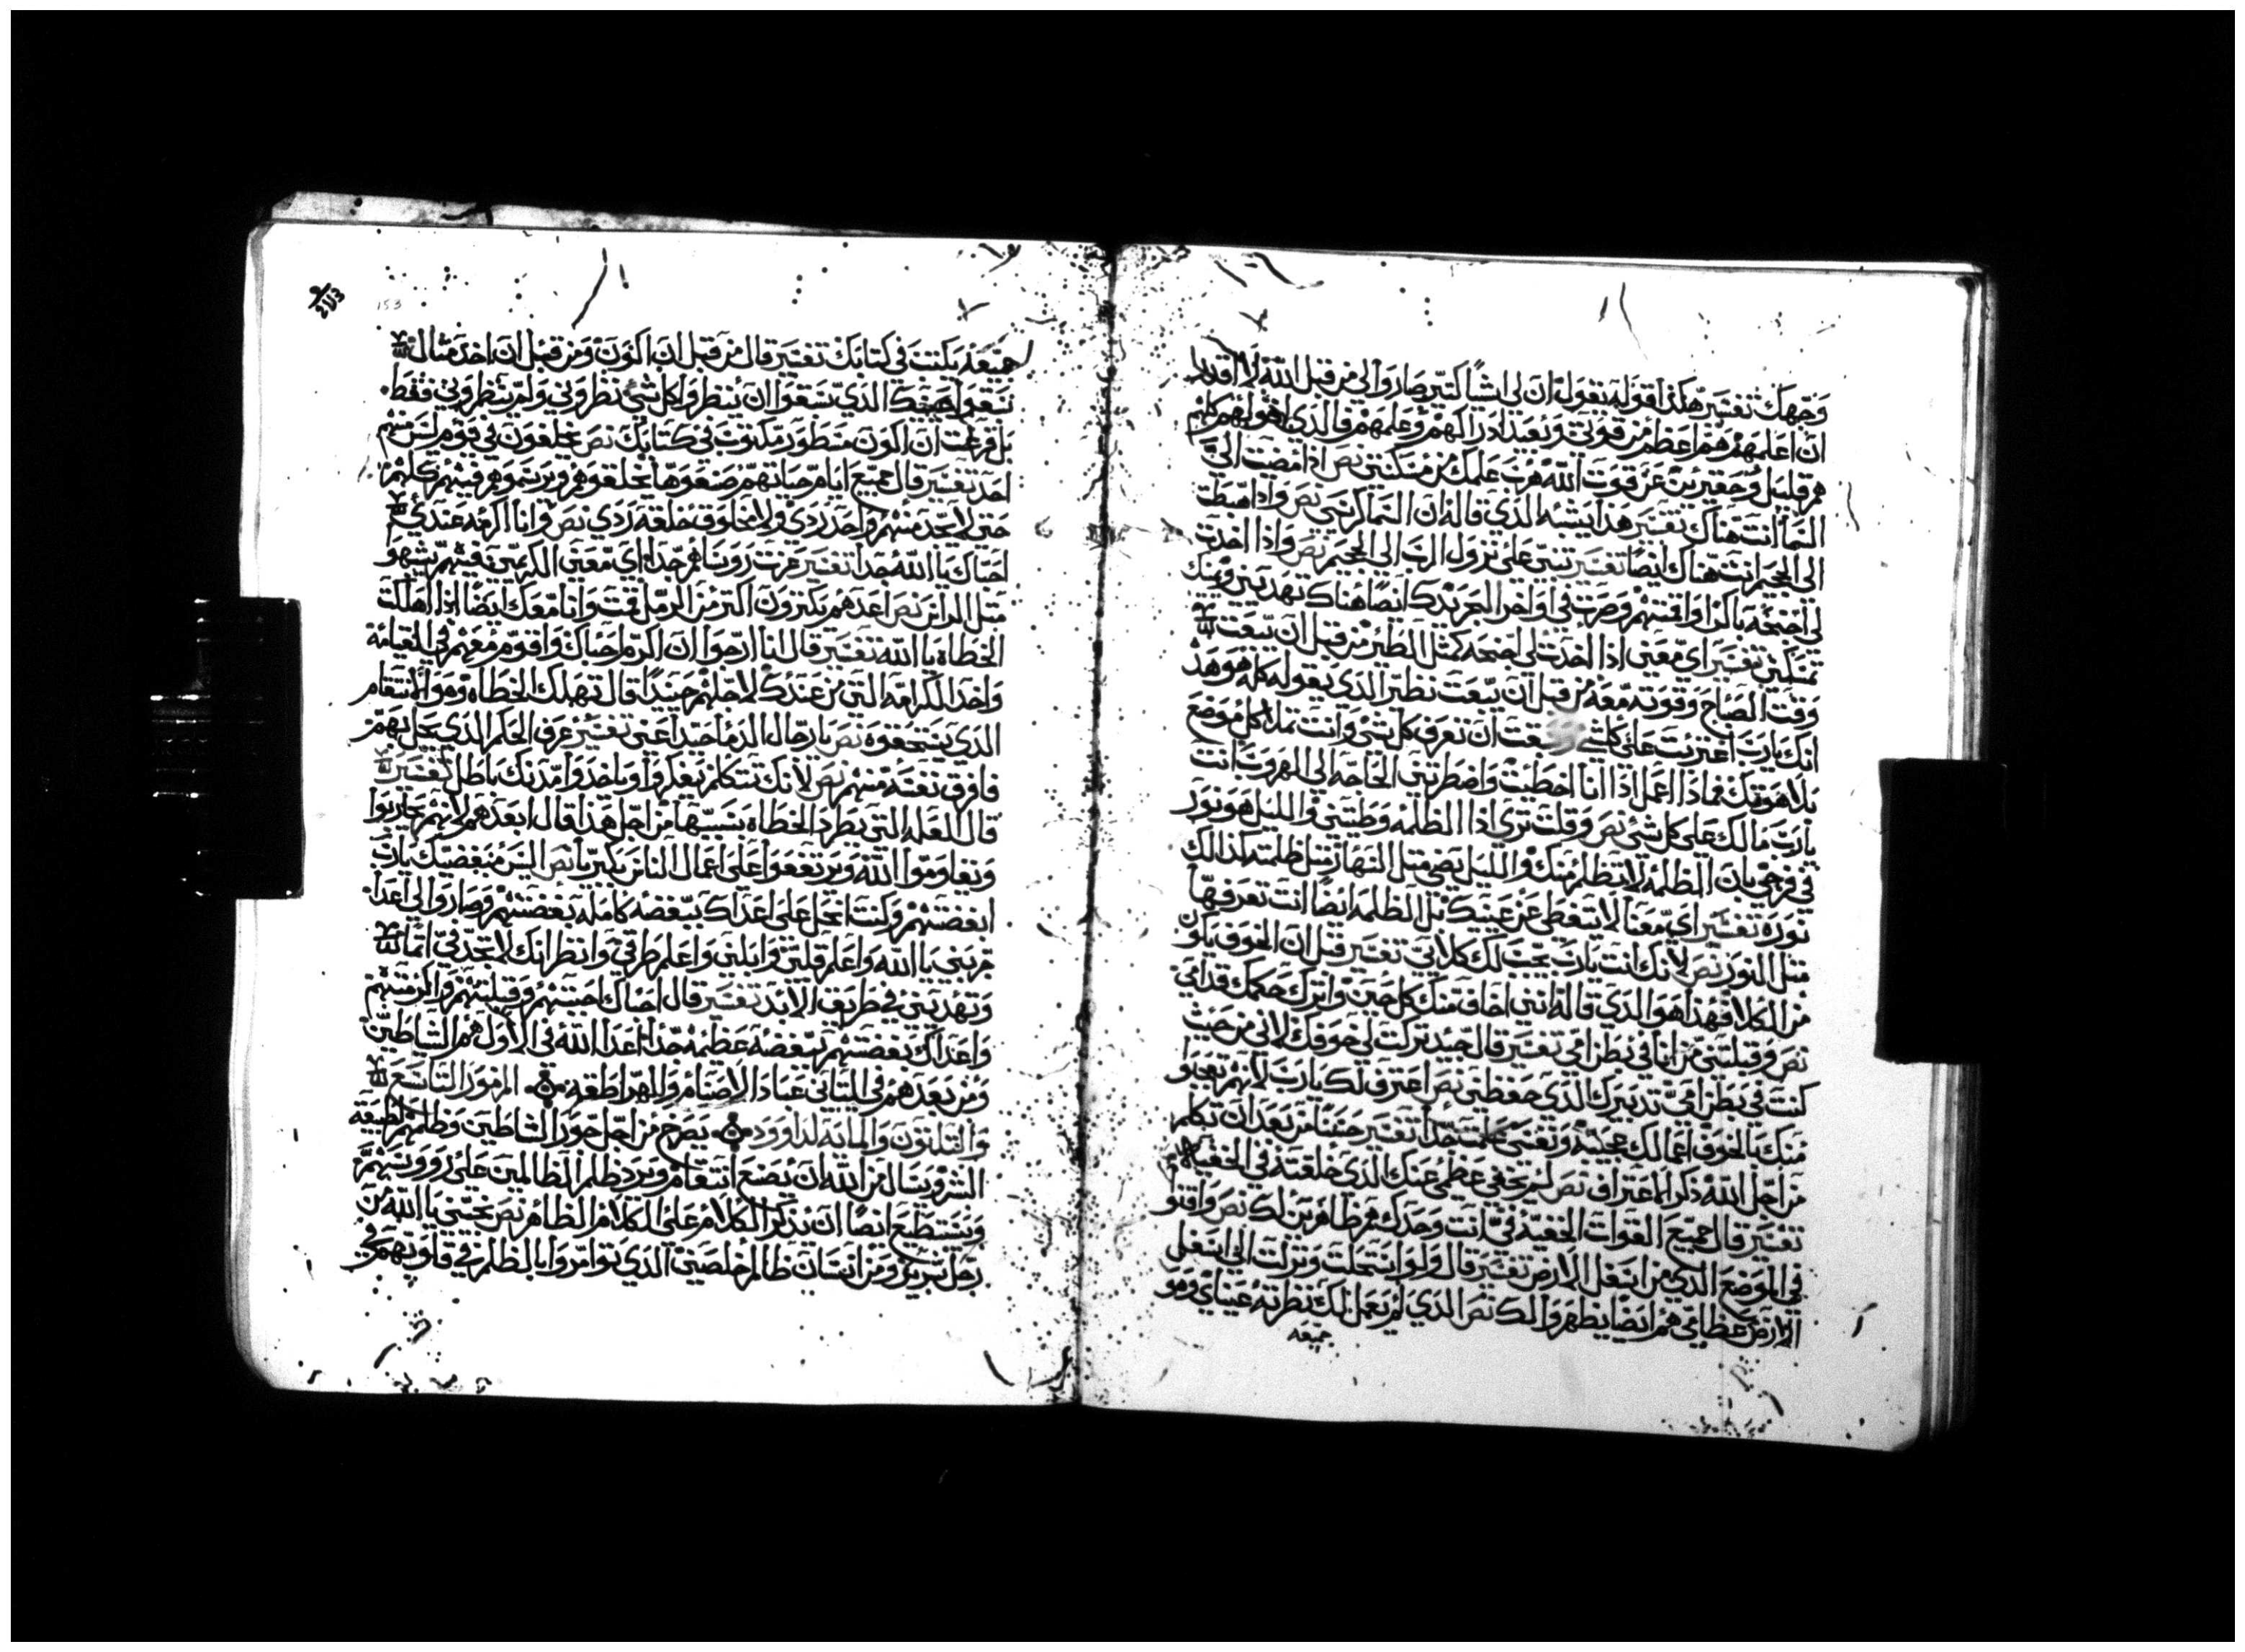 وجهك تفسير هكذا قوله يقول ان لى اشياً كتير صاروا لى من قبل الله لا اقدر
ان اعلمهم هم اعظم من قوتي وبعيد ادراكهم وعلمهم فالذي اقولهم كلهم
هم قليل وحقيرين عن قوت الله هرب علمك من مسكنتى نص اذا مضيت الى
السما انت هناك تفسير هذا يشبه الذي قاله ان السما كرسي نص واذا هبطت
الى الجحيم انت هناك ايضا تفسير تنبى على نزول الرب الى الجحيم نص واذا اخدت
لى اجنحه باكرا واقمتهم وصرت في اواخر البحر يدك ايضا هناك تهديني ويمينك
تمسكني تفسير اي معنى اذا اخدت لى اجنحه كمثل الطير من قبل ان
وقت الصباح وقوته معه من قبل ان نظير الذي يقوله كله هو هذا
انك يارب على كل ان تعرف كل شى وانت تملا كل موضع
بلاهوتك فماذا اعمل اذا انا اخطيت واضطرتني الحاجه الى الهروب انت
يارب مالك على كل شى نص وقلت ترى اذا الظلمه وطيتني والليل هو نور
في فرحي بان الظلمه لا تظلم منك والليل يضى مثل النهار مثل ظلمته كذالك
نوره تفسير اي معنا لا يتغطى عن عينيك بل الظلمه ايضا انت تعرفها
مثل النور نص لانك انت يارب تحت لك كلايتي تفسير قبل ان الخوف يكون
من الكلا فهذا هو الذي قاله انني اخاف منك كل حين واترك حكمك قدامي
نص وقبلتني من انا في بطن امي تفسير قال حيند تركت لي خوفك لاني من حيث
كنت في بطن امي تدبيرك الذي حفظني نص اعترف لك يارب لانهم تعجبوا
منك بالخوف اعمالك عجيبه ونفسي علمت جدا تفسير حسنا من بعد ان تكلم
من اجل الله ذكر الاعتراف نص لم يخفى عظمى عنك الذي خلقته في الخفيه
تفسير قال جميع القوات الخفيه فى انت وحدك هم ظاهرين لك نص واقنو
في الموضع الذي من اسفل الارض تفسير قال ولو ونزلت الى اسفل
الارض عظامى هم ايضا يظهروا لك نص الذي لم نعمل لك نظرته عيناي وهو
جميعه
153
جميعه يكتب في كتابك تفسير قال من قبل ان اكون ومن قبل ان اخد مثال
الذي سبقوا ان ينظروا كل شي نظروني ولم ينظروني فقط
بل عرفت ان اكون منظور مكتوب في كتابك نص يخلقون في يوم ليس منهم
احد تفسير قال جميع ايام حياتهم صنعوها يخلقوهم ويرسموهم فيهم كلهم
حتى لا تجد منهم واحد ردي ولا مخلوق خلقه ردي نص وانا اكرمه عندي هم
احباك يا الله جدا تفسير عزت روساهم جدا اي معنى الذين فيهم يشبهوا
مثل الملايكه نص اعدهم يكترون اكتر من الرمل قمت وانا معك ايضا اذا اهلكت
الخطاه يا الله تفسير قال انا ارجوا ان اكرم احباك واقوم معهم في القيامه
واخد الكرامه التي من عندك لاجلهم جيدا قال تهلك الخطاه وهو الانتقام
الذي يستحقوه نص يا رجال الدما حيدا عنى تفسير عرف الحكم الذي يحل بهم
فافرق نفسه منهم نص لانك تتكلم بفكر وياخدوا مدنك باطل تفسير
قال العله التي يطرد الخطاه بسببها من اجل هذا قال ابعدهم لانهم يحاربوا
ويقاوموا الله ويرتفعوا على اعمال الناس بكبريا نص اليس مبغضيك يارب
ابغضتهم وكنت انحل على اعداك ببغضه كامله بغضتهم وصاروا لى اعدا
جربني يا الله واعلم قلبي وابلني واعلم طرقي وانظر انك لا تجد فى اتما
وتهديني في طريق الابد تفسير قال احباك احببتهم وقبلتهم واكرمتهم
واعداك بغضتهم ببغضه عظيمه جدا اعدا الله في الاول هم الشاطين
ومن بعدهم في التاني عباد الاصنام والهراطقه المزمور التاسع
والتلتون والمايه لداوود يصرح من اجل جور الشاطين وظلمهم لطبيعة
البشر ويسال من الله ان يصنع انتقام ويرد ظلم الظالمين على رووسهم
ونستطيع ايضا ان نذكر الكلام على الكلام الظاهر نص نجيني يا الله من
رجل شرير ومن انسان ظالم خلصني الذي توامروا بالظلم في قلوبهم في